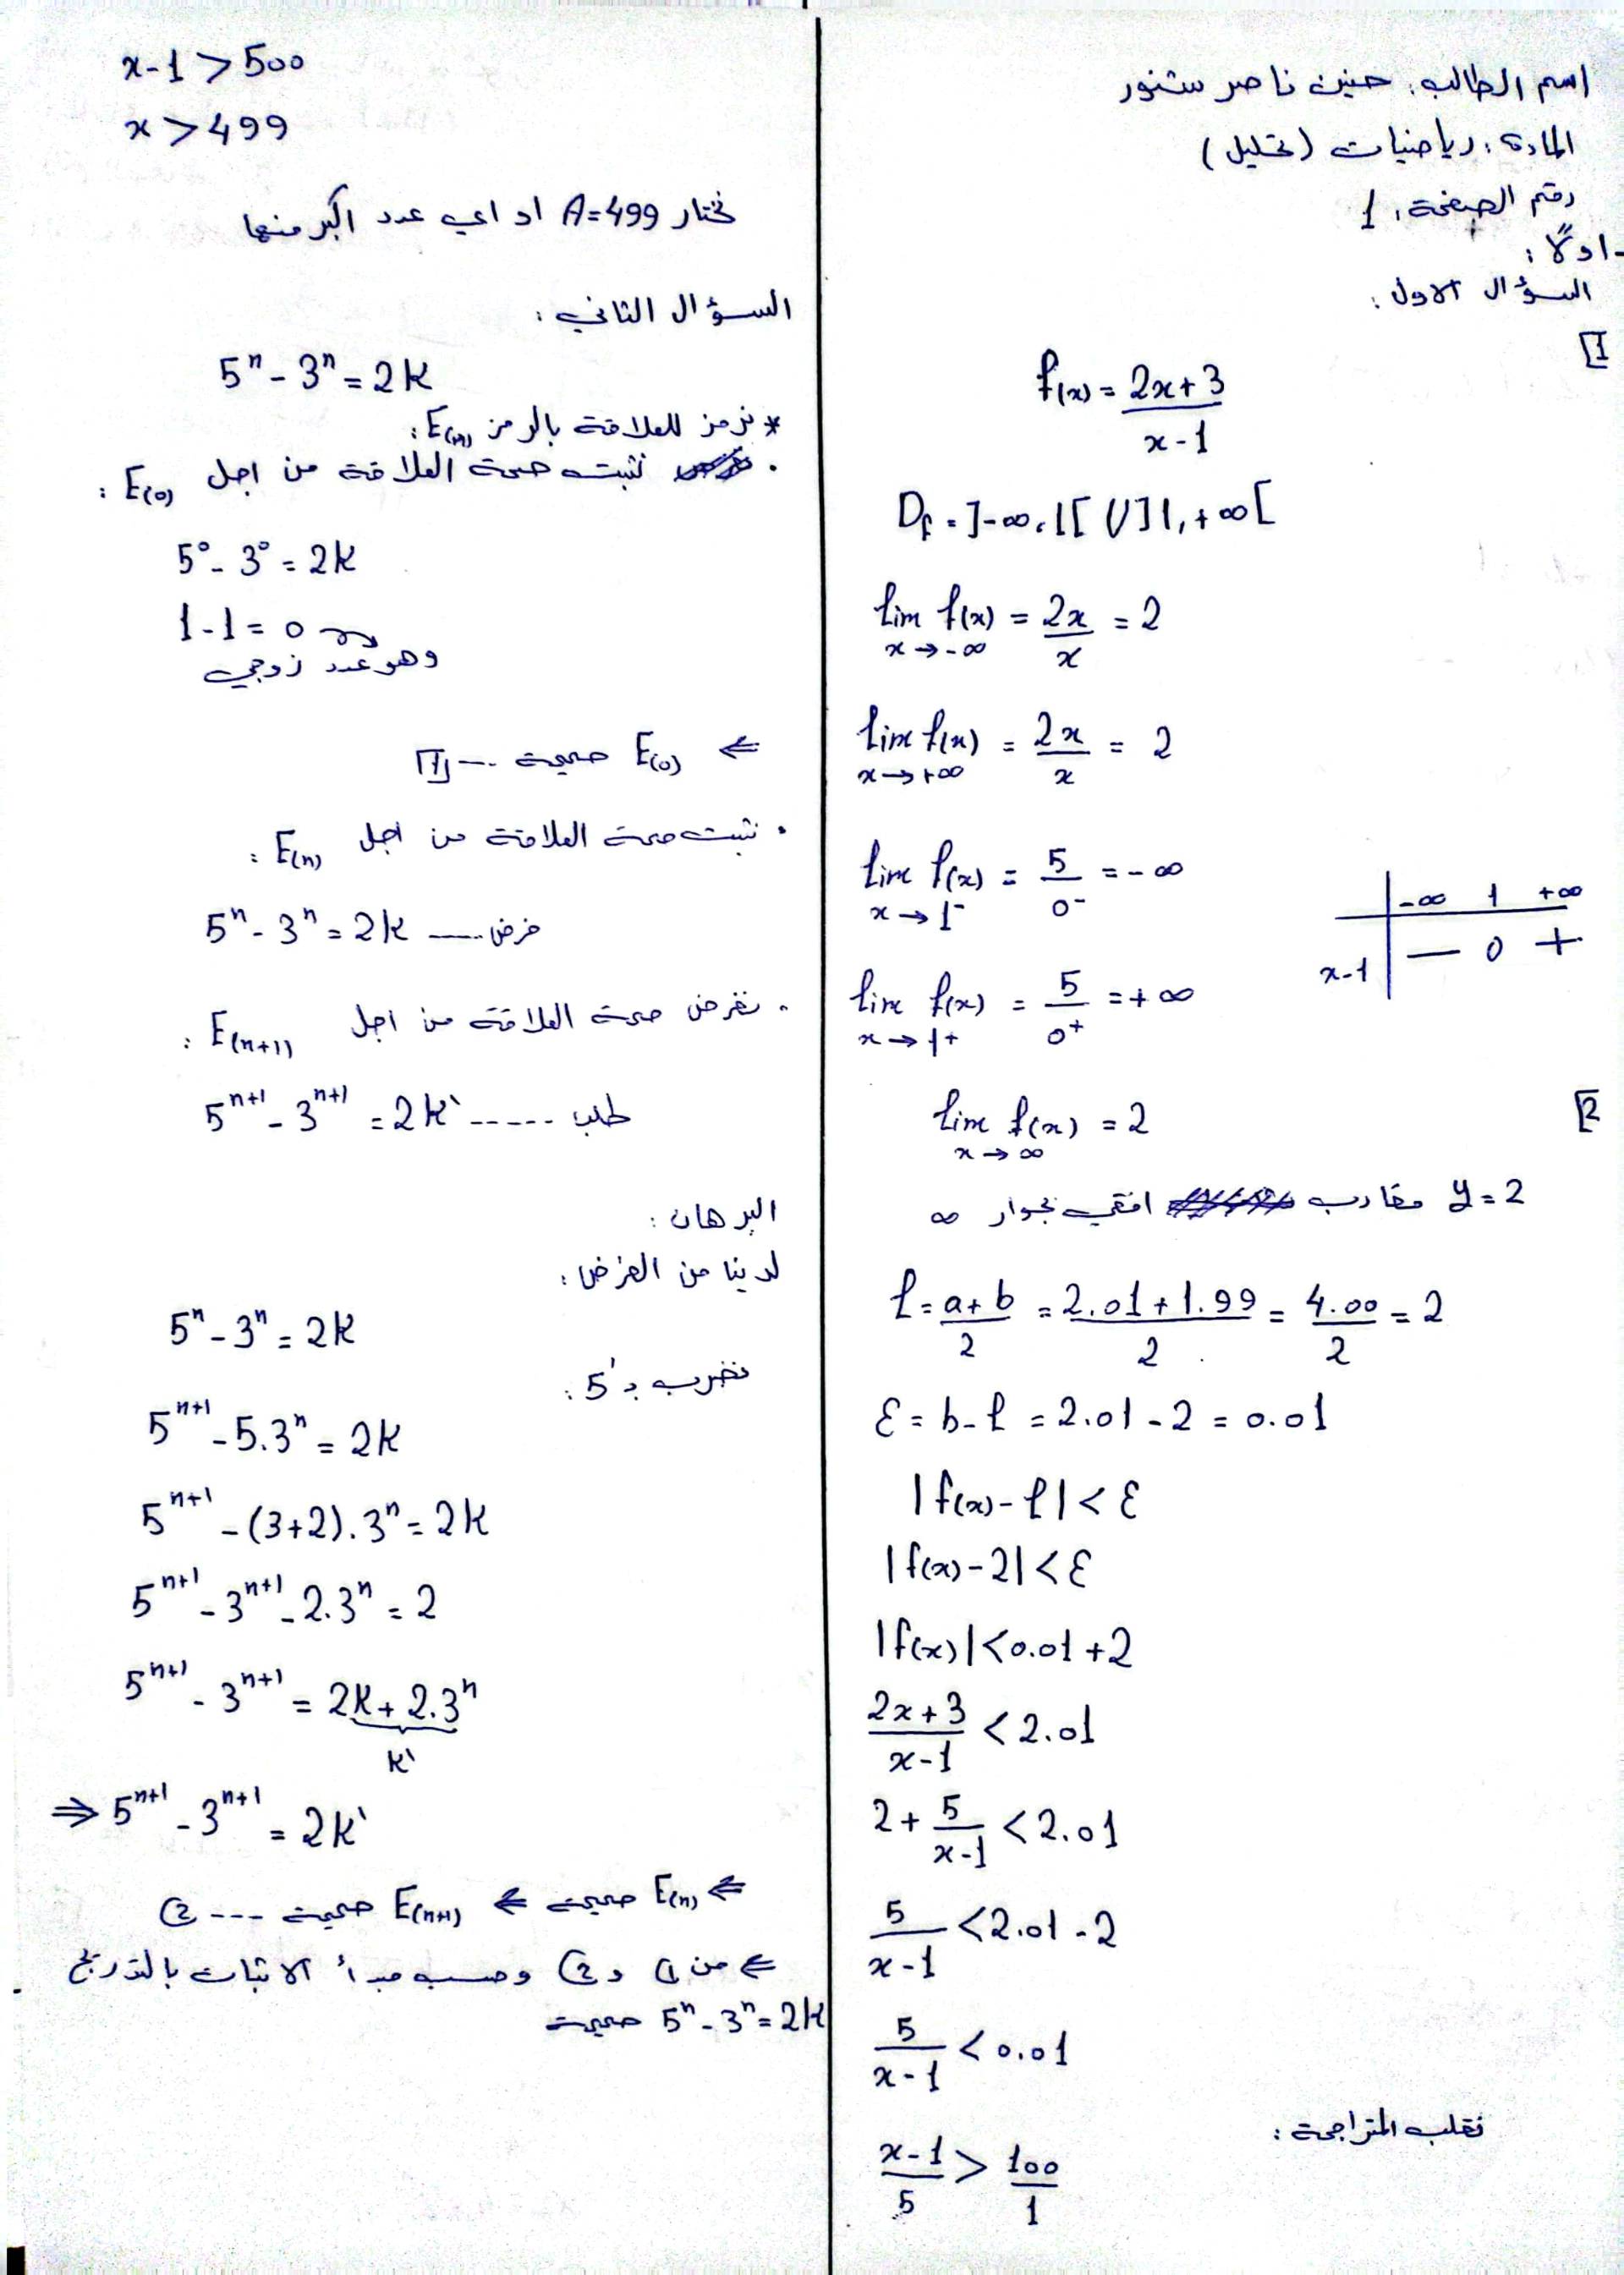 اسم الطالب: حنين ناصر سنور
المادة: رياضيات (تحليل)
رقم الصفحة: 1
-اولاً:
السؤال الاول:
1
f(x) = 2x+3 / x-1
Df = ]-∞, 1[ U ]1, +∞[
lim x→-∞ f(x) = 2x/x = 2
lim x→+∞ f(x) = 2x/x = 2
lim x→1⁻ f(x) = 5/0⁻ = -∞
-∞ 1 +∞
x-1 — 0 +
lim x→1+ f(x) = 5/0⁺ = +∞
2
lim x→∞ f(x) = 2
y=2 مقارب افقي بجوار ∞
ℓ = a+b/2 = 2.01+1.99/2 = 4.00/2 = 2
ε = b-ℓ = 2.01-2 = 0.01
|f(x)-ℓ| < ε
|f(x)-2| < ε
|f(x)| < 0.01+2
2x+3/x-1 < 2.01
2 + 5/x-1 < 2.01
5/x-1 < 2.01-2
5/x-1 < 0.01
نقلب المتراجحة:
x-1/5 > 100/1
x-1 > 500
x > 499
نختار A=499 او اي عدد اكبر منها
السؤال الثاني:
5ⁿ - 3ⁿ = 2k
* نرمز للعلاقة بالرمز E(n):
. نثبت صحة العلاقة من اجل E(0):
5° - 3° = 2k
1-1 = 0
وهو عدد زوجي
⇐ E(0) صحيحة --- 1
. نثبت صحة العلاقة من اجل E(n):
5ⁿ - 3ⁿ = 2k ---- فرض
. نفرض صحة العلاقة من اجل E(n+1):
5ⁿ⁺¹ - 3ⁿ⁺¹ = 2k' ----- طلب
البرهان:
لدينا من الفرض:
5ⁿ - 3ⁿ = 2k
نضرب بـ 5':
5ⁿ⁺¹ - 5.3ⁿ = 2k
5ⁿ⁺¹ - (3+2).3ⁿ = 2k
5ⁿ⁺¹ - 3ⁿ⁺¹ - 2.3ⁿ = 2
5ⁿ⁺¹ - 3ⁿ⁺¹ = 2k + 2.3ⁿ
k'
⇒ 5ⁿ⁺¹ - 3ⁿ⁺¹ = 2k'
⇐ E(n) صحيحة ⇐ E(n+1) صحيحة --- 2
⇐ من 1 و 2 وحسب مبدأ الاثبات بالتدريج
5ⁿ - 3ⁿ = 2k صحيحة